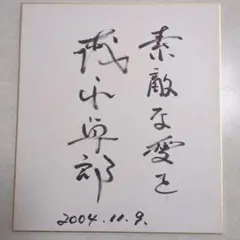 素敵な愛を
浅水卓郎
2004.11.9.